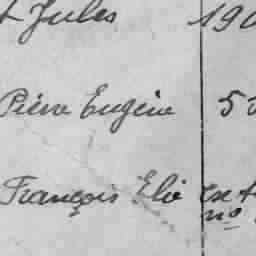 t Jules 190
Pierre Eugène 50
François Elie ext
no